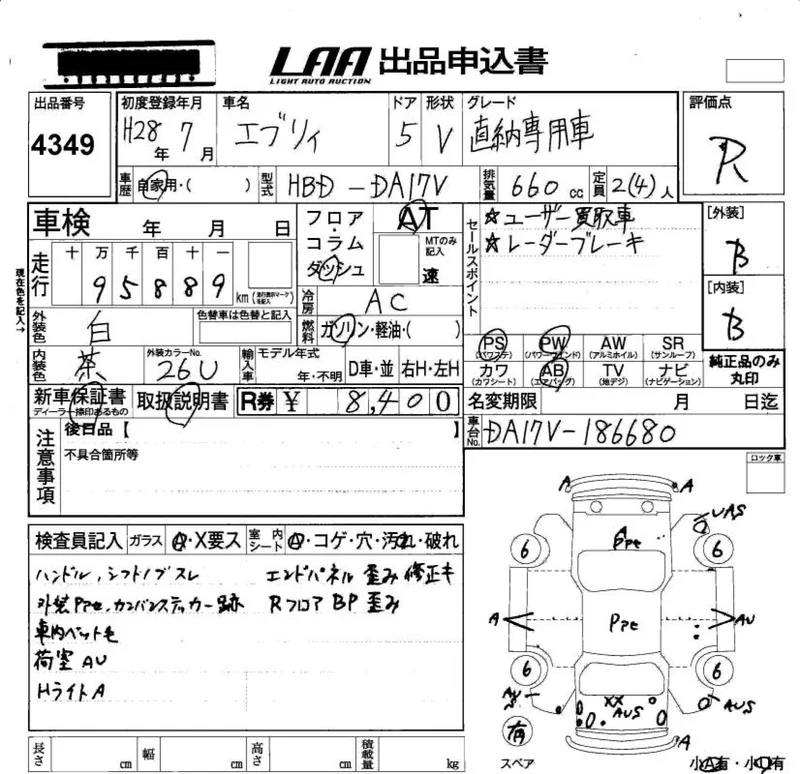 LAA 出品申込書
LIGHT AUTO AUCTION
出品番号
4349
初度登録年月
H28年 7月
車名
エブリィ
ドア
5
形状
V
グレード
直納専用車
評価点
R
車歴
自家用・( )
型式
HBD-DA17V
排気量
660cc
定員
2(4)人
車検 年 月 日
フロア・コラム・ダッシュ
AT
MTのみ記入
速
セールスポイント
☆ユーザー買取車
☆レーダーブレーキ
[外装]
B
[内装]
B
現在色を記入→
走行
十 万 千 百 十 一
9 5 8 8 9 km
(走行表示マークを記入)
冷房
AC
燃料
ガソリン・軽油・( )
外装色
白
色替車は色替と記入
内装色
茶
外装カラーNo.
26U
輸入車
モデル年式
年・不明
D車・並
右H・左H
PS (パワステ)
PW (パワーウインド)
AW (アルミホイル)
SR (サンルーフ)
カワ (カワシート)
AB (エアバッグ)
TV (地デジ)
ナビ (ナビゲーション)
純正品のみ丸印
新車保証書
ディーラー捺印あるもの
取扱説明書
R券 ¥ 8,400
名変期限 月 日迄
注意事項
後日品【 】
不具合箇所等
車台No.
DA17V-186680
ロック車
検査員記入
ガラス
A・X要ス
室内シート
A・コゲ・穴・汚れ・破れ
ハンドル、シフトノブスレ
外装Ppe、カンバンステッカー跡
車内ペット毛
荷室AU
HライトA
エンドパネル歪み修正キ
RフロアBP歪み
A
A
UAS
A
Ppe
6
6
A
Ppe
AU
6
6
XX
AUS
AUS
A
有
スペア
小A有・小U有
長さ cm
幅 cm
高さ cm
積載量 kg